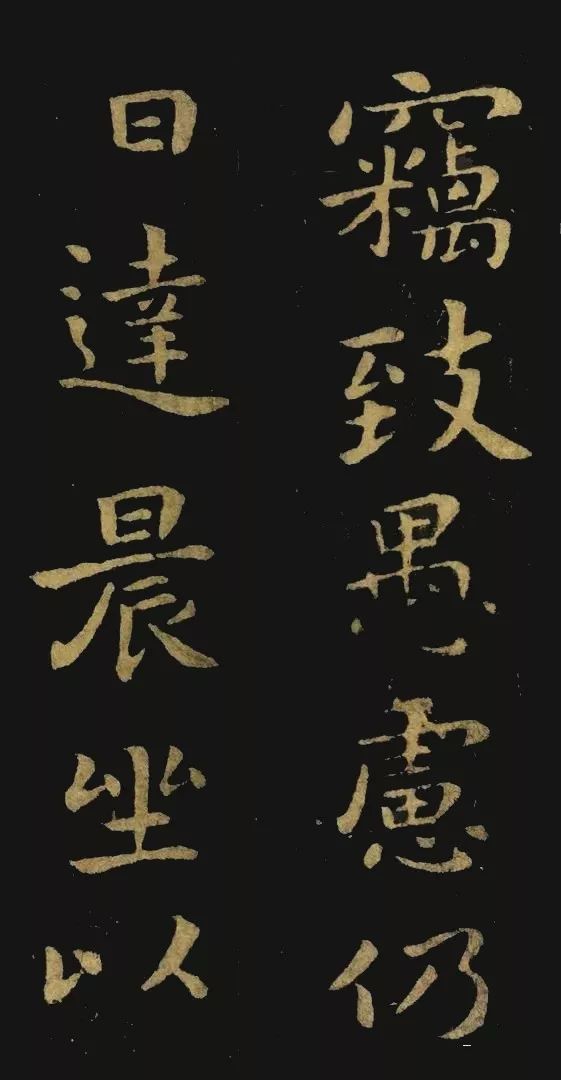 竊致愚慮仍
日達晨坐以